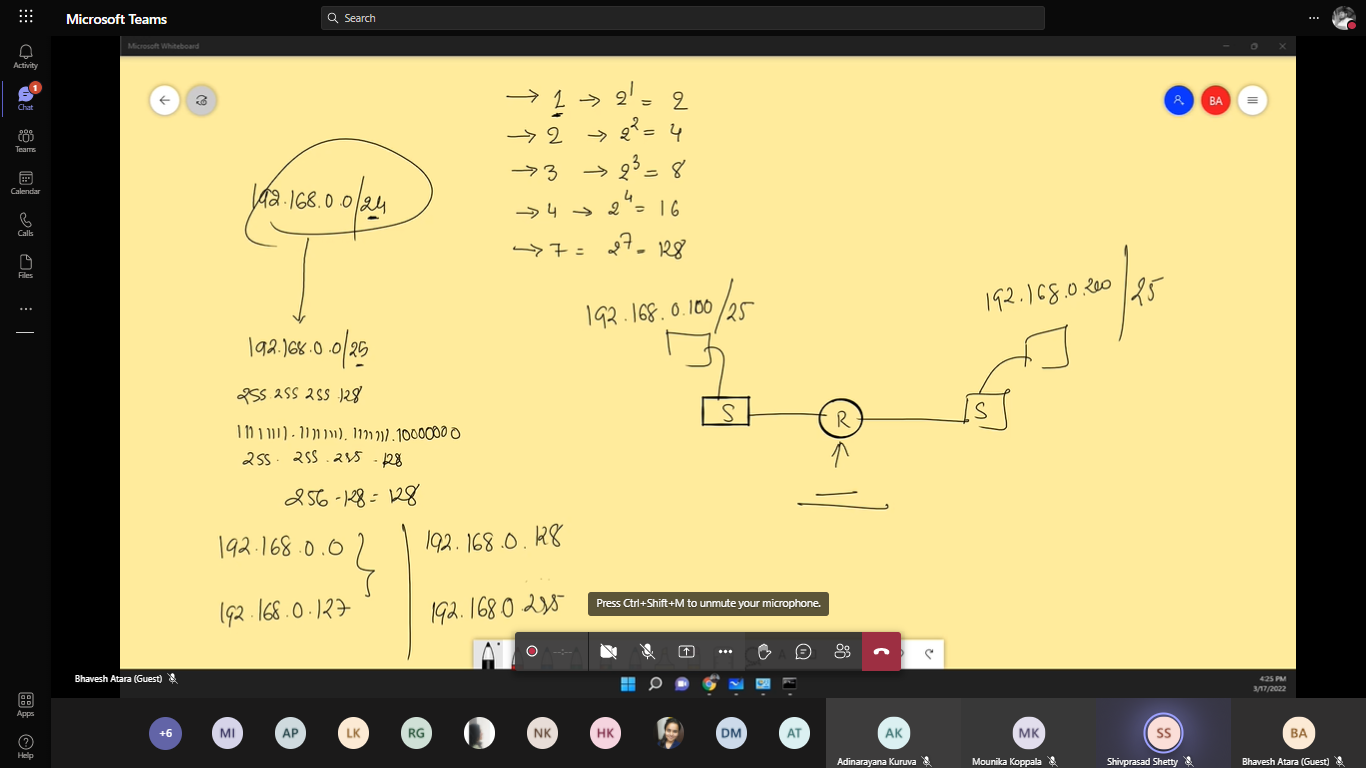 Microsoft Teams
Search
Activity
1
Chat
Teams
Calendar
Calls
Files
Apps
Help
Microsoft Whiteboard
BA
→ 1 → 2^1 = 2
→ 2 → 2^2 = 4
→ 3 → 2^3 = 8
→ 4 → 2^4 = 16
→ 7 = 2^7 = 128
192.168.0.0/24
192.168.0.0/25
255.255.255.128
11111111.11111111.11111111.10000000
255.255.255.128
256-128=128
192.168.0.0
192.168.0.127
192.168.0.128
192.168.0.255
192.168.0.100/25
192.168.0.200/25
S
R
S
Press Ctrl+Shift+M to unmute your microphone.
Bhavesh Atara (Guest)
4:25 PM
3/17/2022
+6
MI
AP
LK
RG
NK
HK
DM
AT
AK
MK
SS
BA
Adinarayana Kuruva
Mounika Koppala
Shivprasad Shetty
Bhavesh Atara (Guest)